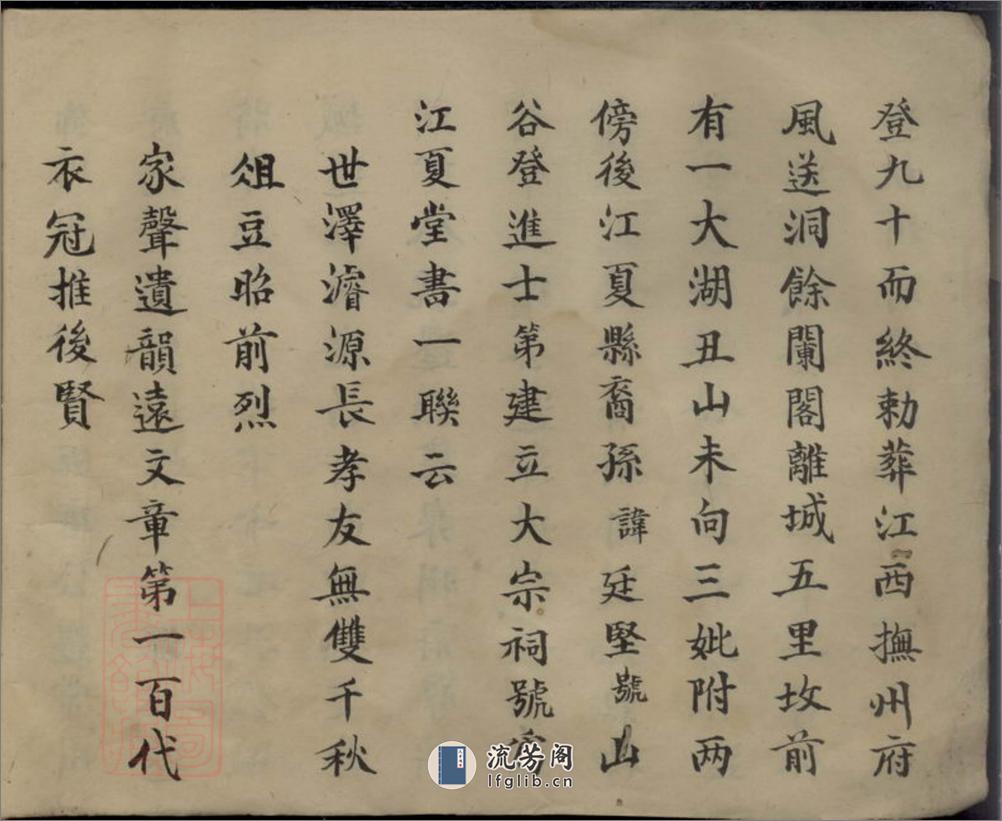 登九十而終勅葬江西撫州府
風送洞餘闌閣離城五里坟前
有一大湖丑山未向三妣附两
傍後江夏縣裔孫諱廷堅號山
谷登進士第建立大宗祠號
江夏堂書一聯云
世澤濬源長孝友無雙千秋
俎豆昭前烈
家聲遺韻遠文章第一百代
衣冠推後賢
流芳阁
lfglib.cn